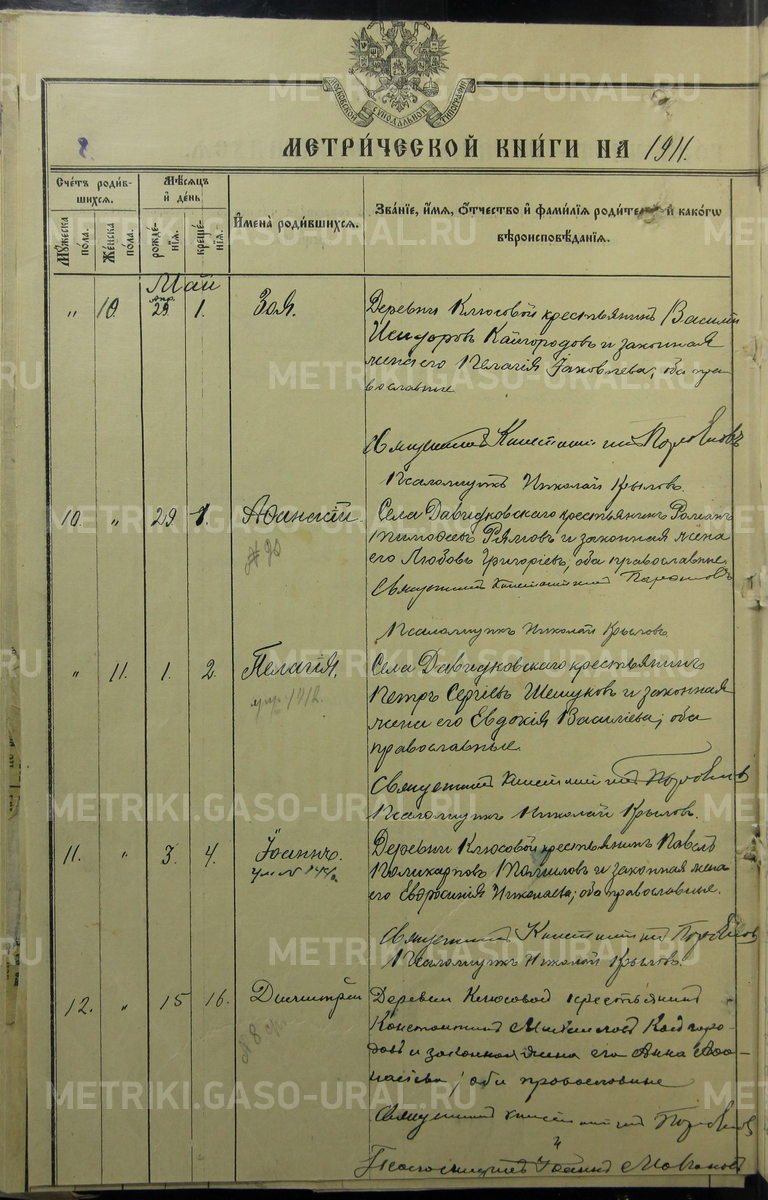 МОСКОВСКОЙ СѴНОДАЛЬНОЙ ТИПОГРАФІИ
8
МЕТРИ́ЧЕСКОЙ КНИ́ГИ НА 1911.
Счетъ роди́вшихся.
Мꙋжеска по́ла.
Же́нска по́ла.
Мѣ́сяцъ и҆ де́нь
рожде́нїя.
креще́нїя.
И҆мена̀ роди́вшихся.
Зва́нїе, и҆́мя, ѻ҆́тчество и҆ фами́лїѧ роди́телей и҆ како́гѡ
вѣроисповѣ́данїѧ.
Май
" 10. Апр. 29 1. Зоя.
Деревни Клюсовой крестьянинъ Василій
Исидоровъ Кайгородовъ и законная
жена его Пелагія Іаковлева; оба пра
вославные
Священникъ Константинъ
Псаломщикъ Николай Крыловъ.
10. " 29 1. Аѳанасій.
№ 90
Села Давыдковскаго крестьянинъ Романъ
Тимоѳеевъ и законная жена
его Любовь Григоріева, оба православные.
Священникъ Константинъ
Псаломщикъ Николай Крыловъ.
" 11. 1. 2. Пелагія.
1912.
Села Давыдковскаго крестьянинъ
Петръ Сергіевъ Шешуковъ и законная
жена его Евдокія Василіева; оба
православные.
Священникъ Константинъ
Псаломщикъ Николай Крыловъ.
11. " 3. 4. Іоаннъ.
Деревни Клюсовой крестьянинъ Павелъ
Поликарповъ и законная жена
его Евфросинія Николаева; оба православные.
Священникъ Константинъ
Псаломщикъ Николай Крыловъ.
12. " 15 16. Димитрій
Деревни Клюсовой крестьянинъ
Константинъ Михаиловъ Кайгоро-
довъ и законная жена его Анна Аѳа-
насіева; оба православные
Священникъ Константинъ
Псаломщикъ Іоаннъ
METRIKI.GASO-URAL.RU